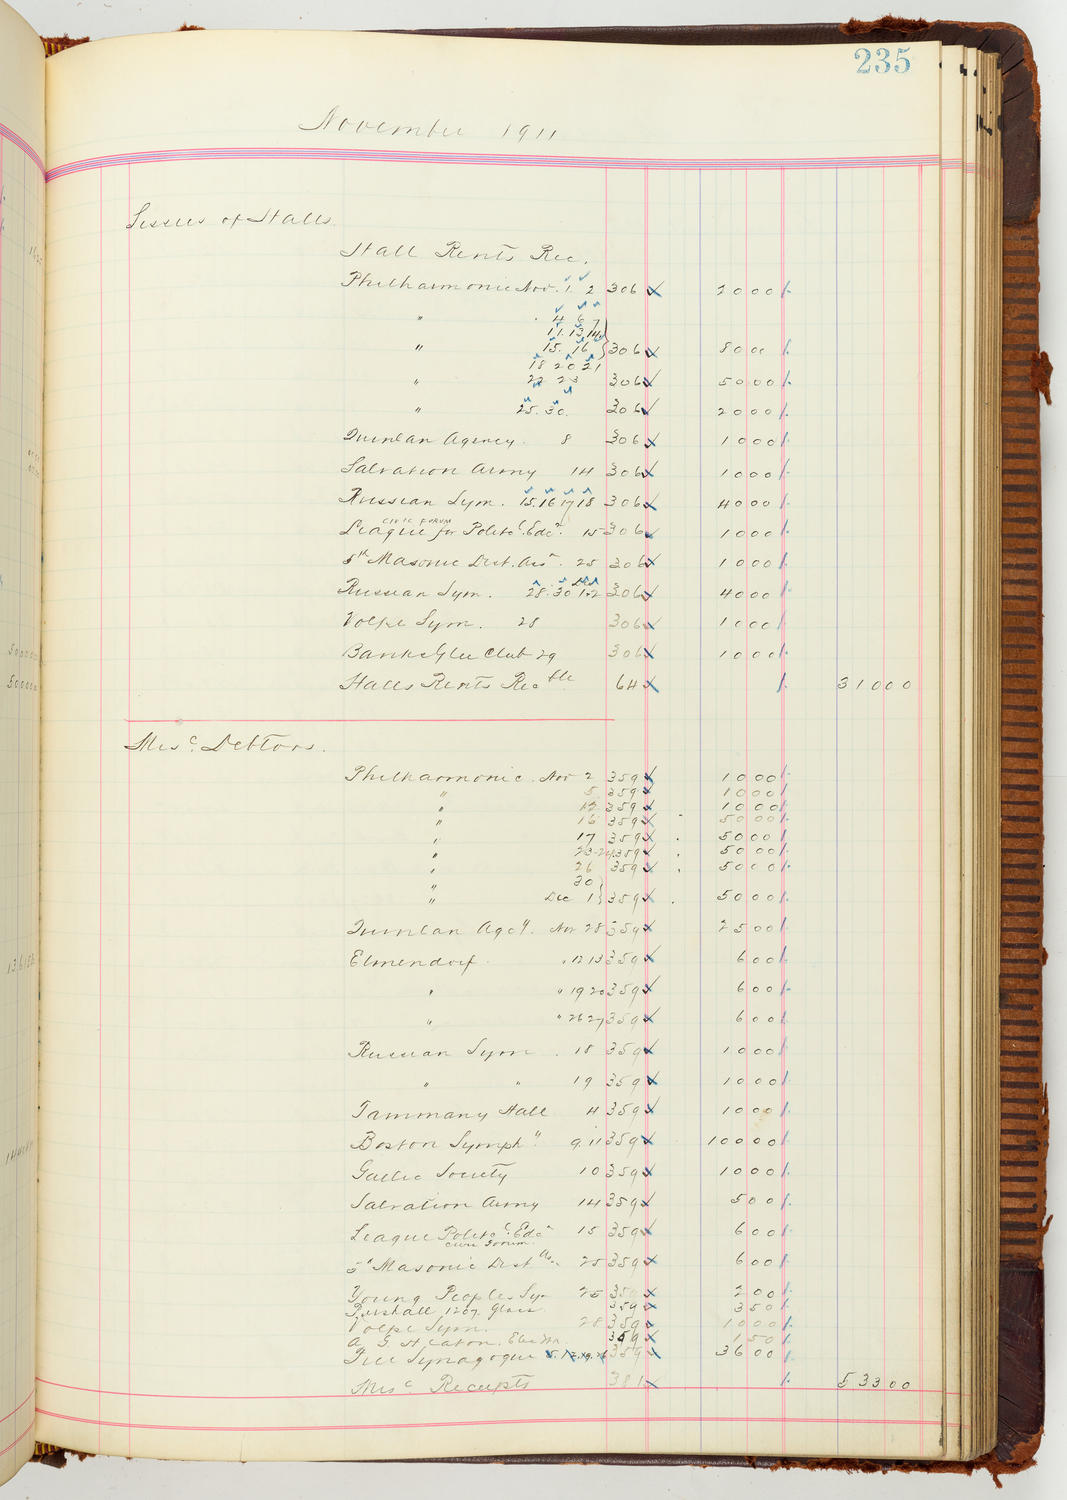 235
November 1911
Lessees of Halls.
Hall Rents Rec.
Philharmonic Nov. 1. 2 306 2000
" . 4 6 7
11. 13. 14
" 15. 16 306 8000
18 20 21
" 22 23 306 5000
" 25. 30. 306 2000
Quinlan Agency. 8 306 1000
Salvation Army 14 306 1000
Russian Sym. 15. 16 17 18 306 4000
CIVIC FORUM
League for Polit'c'l. Edc'n. 15 306 1000
5th Masonic Dist. Ass'n. 25 306 1000
Dec
Russian Sym. 28. 30 1.2 306 4000
Volpe Sym. 28 306 1000
Banks Glee Club 29 306 1000
Halls Rents Rec'ble 64 31000
Misc. Debtors.
Philharmonic. Nov 2 359 1000
" 5 359 1000
" 12 359 1000
" 16 359 5000
" 17 359 5000
" 23-24 359 5000
" 26 359 5000
" 30
" Dec 1 359 5000
Quinlan Agcy. Nov 28 359 2500
Elmendorf " 12 13 359 600
" " 19 20 359 600
" " 26 27 359 600
Russian Sym . 18 359 1000
" " 19 359 1000
Tammany Hall 4 359 1000
Boston Symph" 9. 11 359 10000
Gaelic Society 10 359 1000
Salvation Army 14 359 500
League Polit'c'l. Edc'n 15 359 600
Civic Forum.
5th Masonic Dist Ass. 25 359 600
Young Peoples Sym 25 359 200
1207 Glass 359 350
Volpe Sym. 28 359 1000
A. G. Heaton. Elec 359 150
Free Synagogue 5. 12. 19. 26 359 3600
Misc Receipts 381 53300